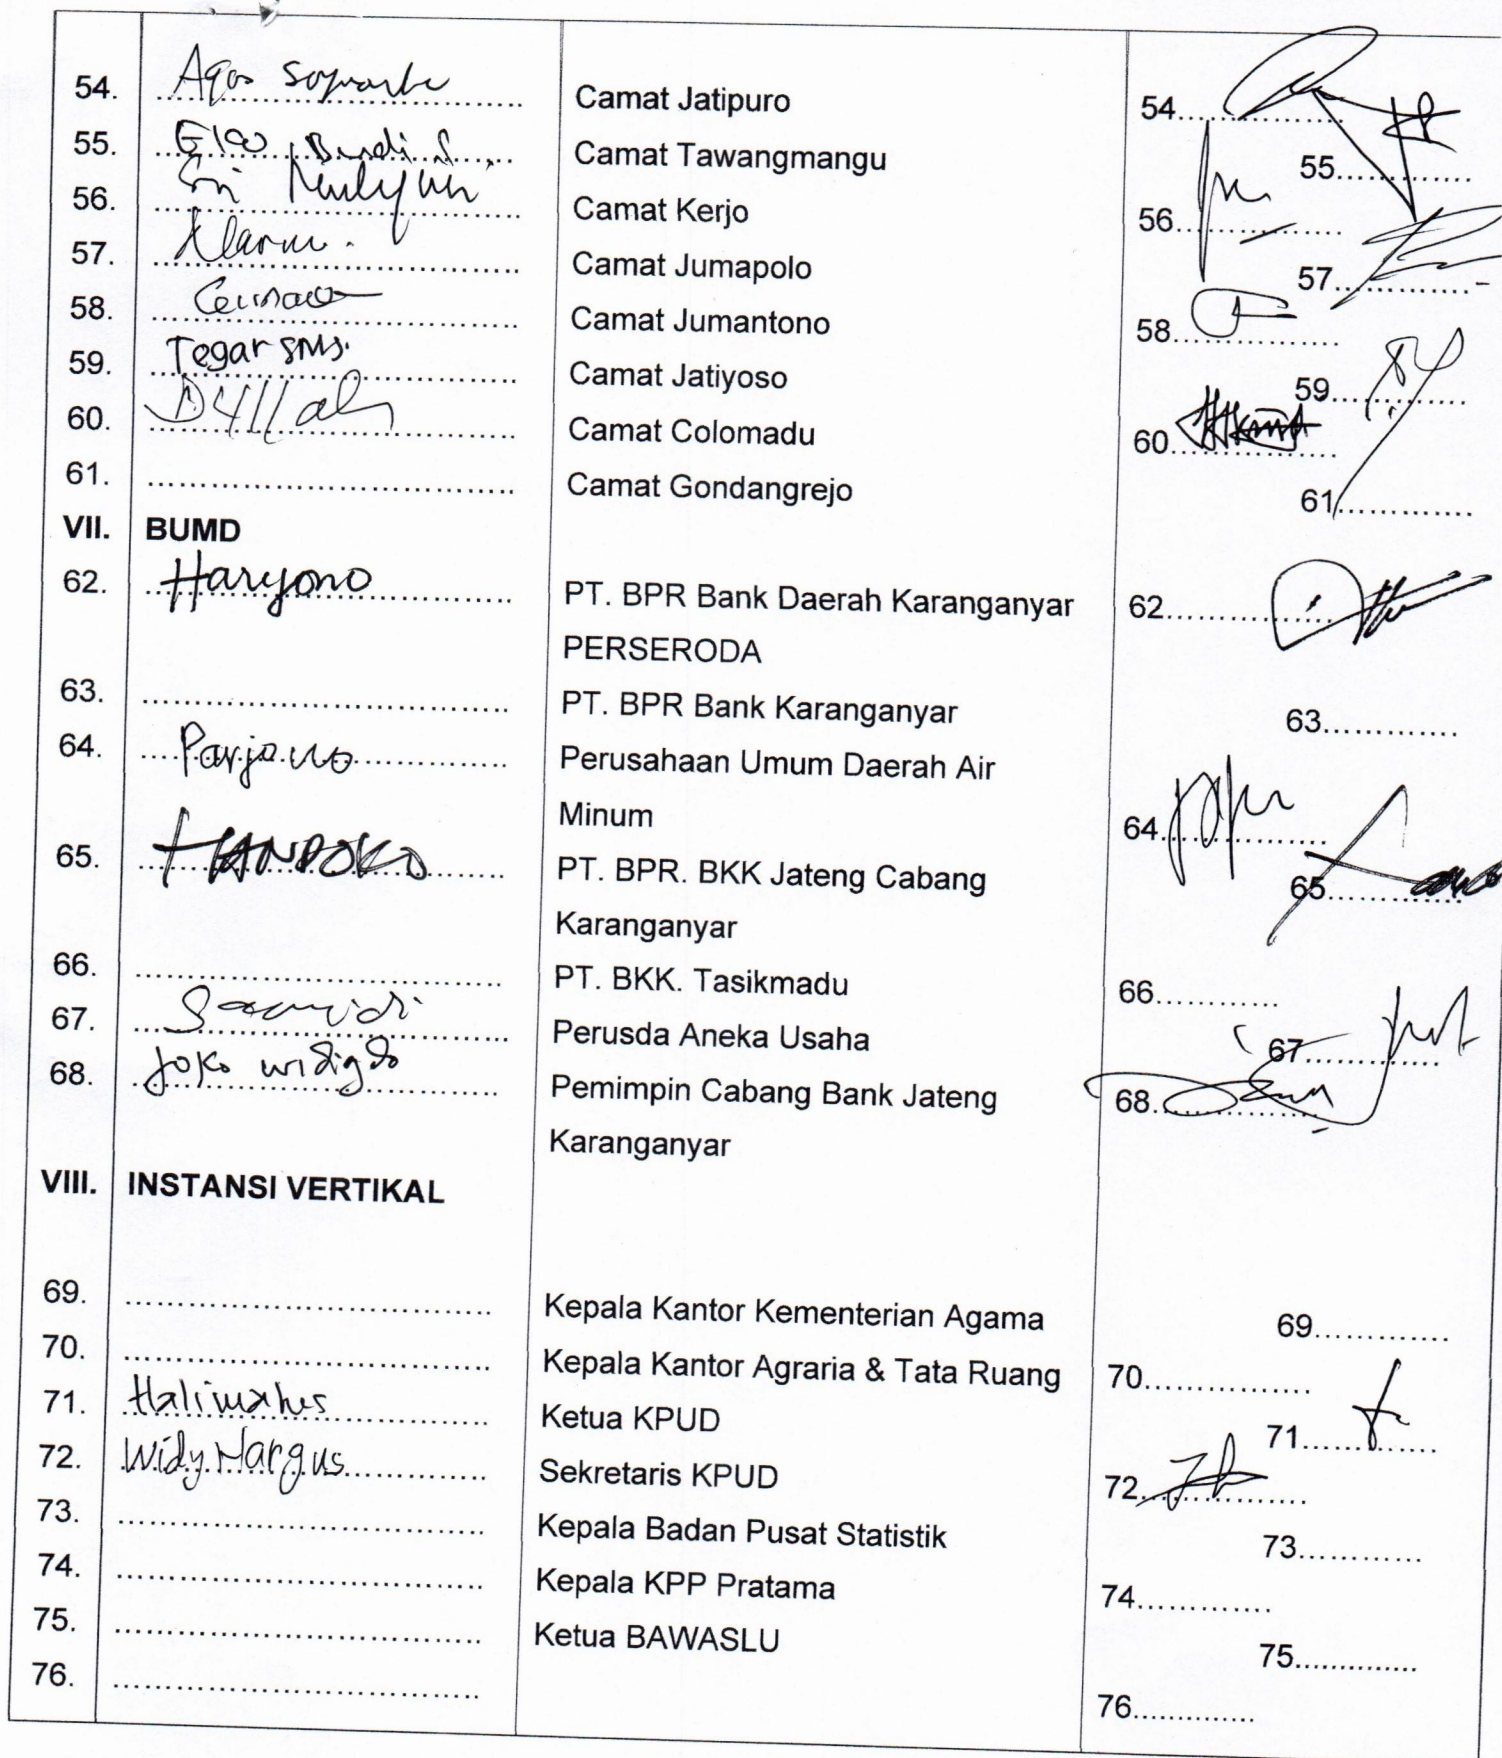 54. Agus Camat Jatipuro 54
55. Budi S. Camat Tawangmangu 55
56. Sri Camat Kerjo 56
57. Camat Jumapolo 57
58. Camat Jumantono 58
59. Tegar SMS. Camat Jatiyoso 59
60. Camat Colomadu 60
61. Camat Gondangrejo 61
VII. BUMD
62. Haryono PT. BPR Bank Daerah Karanganyar 62
PERSERODA
63. PT. BPR Bank Karanganyar 63
64. Parjono Perusahaan Umum Daerah Air
Minum 64
65. HANDOKO PT. BPR. BKK Jateng Cabang 65
Karanganyar
66. PT. BKK. Tasikmadu 66
67. Perusda Aneka Usaha 67
68. Joko widigdo Pemimpin Cabang Bank Jateng 68
Karanganyar
VIII. INSTANSI VERTIKAL
69. Kepala Kantor Kementerian Agama 69
70. Kepala Kantor Agraria & Tata Ruang 70
71. Ketua KPUD 71
72. Widy Hargus Sekretaris KPUD 72
73. Kepala Badan Pusat Statistik 73
74. Kepala KPP Pratama 74
75. Ketua BAWASLU 75
76. 76